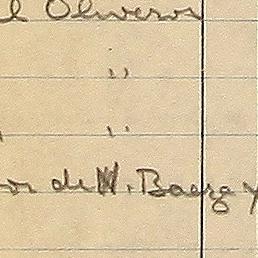 l Oliveros
"
"
or de M. Baeza y